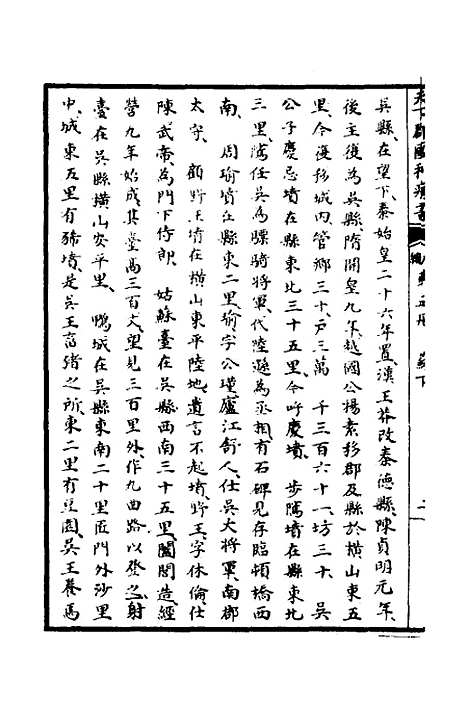 天下郡國利病書 原編第五册 蘇下
吳縣、在望下、秦始皇二十六年置、漢王莽改泰德縣、陳貞明元年、
後主復為吳縣、隋開皇九年、越國公楊素移郡及縣於橫山東五
里、今復移城内、管鄉三十、户三萬 千三百六十一、坊三十、 吳
公子慶忌墳在縣東北三十五里、今呼慶墳、 步隲墳在縣東北
三里、隲任吳為驃騎將軍、代陸遜為丞相、有石碑見存臨頓橋西
南、 周瑜墳在縣東二里、瑜字公瑾、廬江舒人、仕吳大將軍、南郡
太守、 顧野王墳在橫山東平陸地、遺言不起墳、野王字休倫、仕
陳武帝、為門下侍郎、 姑蘇臺在吳縣西南三十五里、闔閭造、經
營九年始成、其臺高三百丈、望見三百里外、作九曲路以登之、射
臺在吳縣橫山安平里、 鴨城在吳縣東南二十里匠門外沙里
中、城東五里有豨墳、是吳王畜猪之所、東二里有豆園、吳王養馬